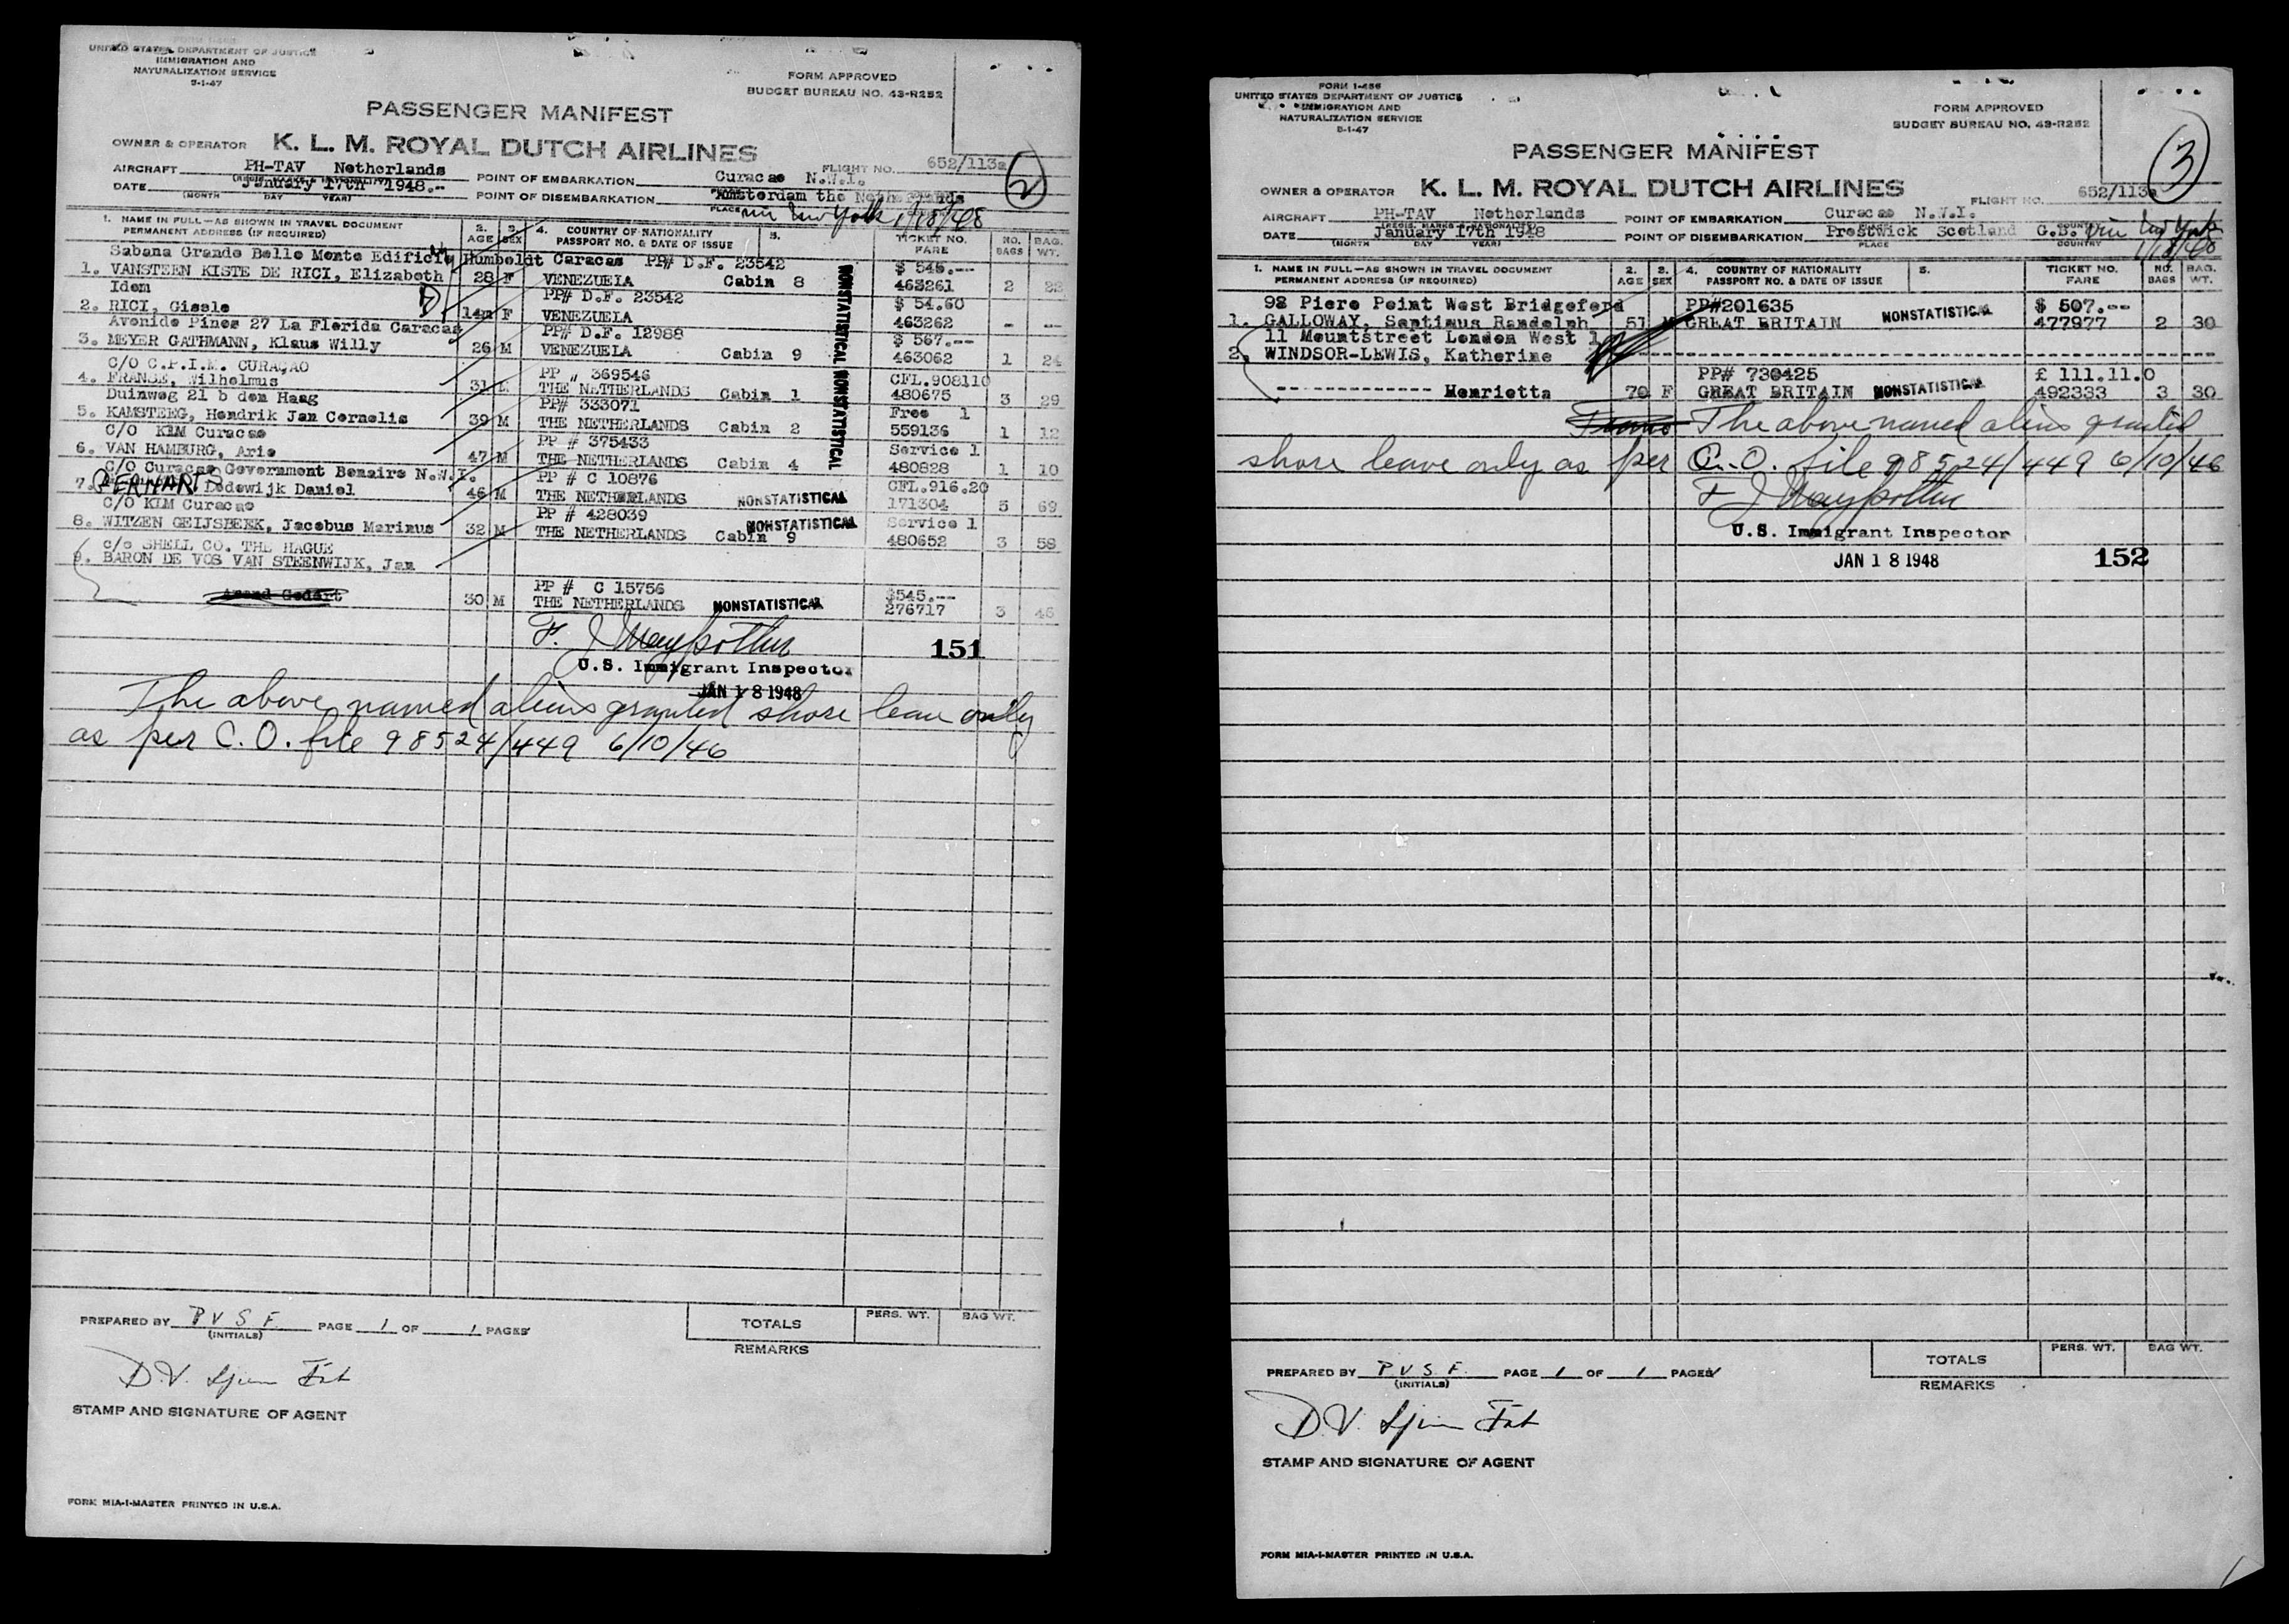 FORM I-466
UNITED STATES DEPARTMENT OF JUSTICE
IMMIGRATION AND
NATURALIZATION SERVICE
5-1-47
FORM APPROVED
BUDGET BUREAU NO. 43-R252
PASSENGER MANIFEST
OWNER & OPERATOR K. L. M. ROYAL DUTCH AIRLINES
FLIGHT NO. 652/113a
2
AIRCRAFT PH-TAV Netherlands
(REGIS. MARKS & NATIONALITY)
POINT OF EMBARKATION Curacao N.W.I.
DATE January 17th 1948.-
(MONTH DAY YEAR)
POINT OF DISEMBARKATION Amsterdam the Netherlands
PLACE
via New York 1/18/48
1. NAME IN FULL—AS SHOWN IN TRAVEL DOCUMENT 2. 3. 4. COUNTRY OF NATIONALITY 5. TICKET NO. NO. BAG.
PERMANENT ADDRESS (IF REQUIRED) AGE SEX PASSPORT NO. & DATE OF ISSUE FARE BAGS WT.
Sabana Grande Bello Monte Edificio Humboldt Caracas PP# D.F. 23542 $ 546.--
1. VANSTEEN KISTE DE RICI, Elizabeth 28 F VENEZUELA Cabin 8 463261 2 22
Idem PP# D.F. 23542 $ 54.60
2. RICI, Gisele 14m F VENEZUELA 463262 - --
Avenido Pinos 27 La Florida Caracas PP# D.F. 12988 $ 567.--
3. MEYER GATHMANN, Klaus Willy 26 M VENEZUELA Cabin 9 463062 1 24
C/O C.P.I.M. CURAÇAO PP " 369546 CFL.908110
4. FRANSE, Wilhelmus 31 M THE NETHERLANDS Cabin 1 480675 3 29
Duinweg 21 b den Haag PP# 333071 Free 1
5. KAMSTEEG, Hendrik Jan Cornelis 39 M THE NETHERLANDS Cabin 2 559136 1 12
C/O KLM Curacao PP # 375433 Service 1
6. VAN HAMBURG, Arie 47 M THE NETHERLANDS Cabin 4 480828 1 10
C/O Curacao Government Bonaire N.W.I. PP # C 10876 CFL.916.20
7. GERHARTS Lodewijk Daniel 46 M THE NETHERLANDS NONSTATISTICAL 171304 5 69
C/O KLM Curacao PP # 428039 NONSTATISTICAL Service 1
8. WITZEN GEIJSBEEK, Jacobus Marinus 32 M THE NETHERLANDS Cabin 9 480652 3 58
c/o SHELL CO. THE HAGUE
9. BARON DE VOS VAN STEENWIJK, Jan
PP # C 15756 $545.--
30 M THE NETHERLANDS NONSTATISTICAL 276717 3 46
NONSTATISTICAL NONSTATISTICAL
151
U.S. Immigrant Inspector
JAN 18 1948
The above named aliens granted shore leave only
as per C.O. file 98524/449 6/10/46
PREPARED BY P V S F.
(INITIALS)
PAGE 1 OF 1 PAGES
TOTALS PERS. WT. BAG WT.
REMARKS
STAMP AND SIGNATURE OF AGENT
FORM MIA-I-MASTER PRINTED IN U.S.A.
FORM I-466
UNITED STATES DEPARTMENT OF JUSTICE
IMMIGRATION AND
NATURALIZATION SERVICE
5-1-47
FORM APPROVED
BUDGET BUREAU NO. 43-R252
3
PASSENGER MANIFEST
OWNER & OPERATOR K. L. M. ROYAL DUTCH AIRLINES
FLIGHT NO. 652/113a
AIRCRAFT PH-TAV Netherlands
(REGIS. MARKS & NATIONALITY)
POINT OF EMBARKATION Curacao N.W.I.
DATE January 17th 1948
(MONTH DAY YEAR)
POINT OF DISEMBARKATION Prestwick Scotland G.B. via New York
PLACE COUNTRY
1/18/48
1. NAME IN FULL—AS SHOWN IN TRAVEL DOCUMENT 2. 3. 4. COUNTRY OF NATIONALITY 5. TICKET NO. NO. BAG.
PERMANENT ADDRESS (IF REQUIRED) AGE SEX PASSPORT NO. & DATE OF ISSUE FARE BAGS WT.
98 Piere Point West Bridgeford PP#201635 $ 507.--
1. GALLOWAY, Septimus Randolph 51 M GREAT BRITAIN NONSTATISTICAL 477977 2 30
11 Mountstreet London West 1
2. WINDSOR-LEWIS, Katherine
PP# 730425 £ 111.11.0
Henrietta 70 F GREAT BRITAIN NONSTATISTICAL 492333 3 30
The above named aliens granted
shore leave only as per C.O. file 98524/449 6/10/46
U.S. Immigrant Inspector
JAN 18 1948
152
PREPARED BY P V S F.
(INITIALS)
PAGE 1 OF 1 PAGES
TOTALS PERS. WT. BAG WT.
REMARKS
STAMP AND SIGNATURE OF AGENT
FORM MIA-I-MASTER PRINTED IN U.S.A.